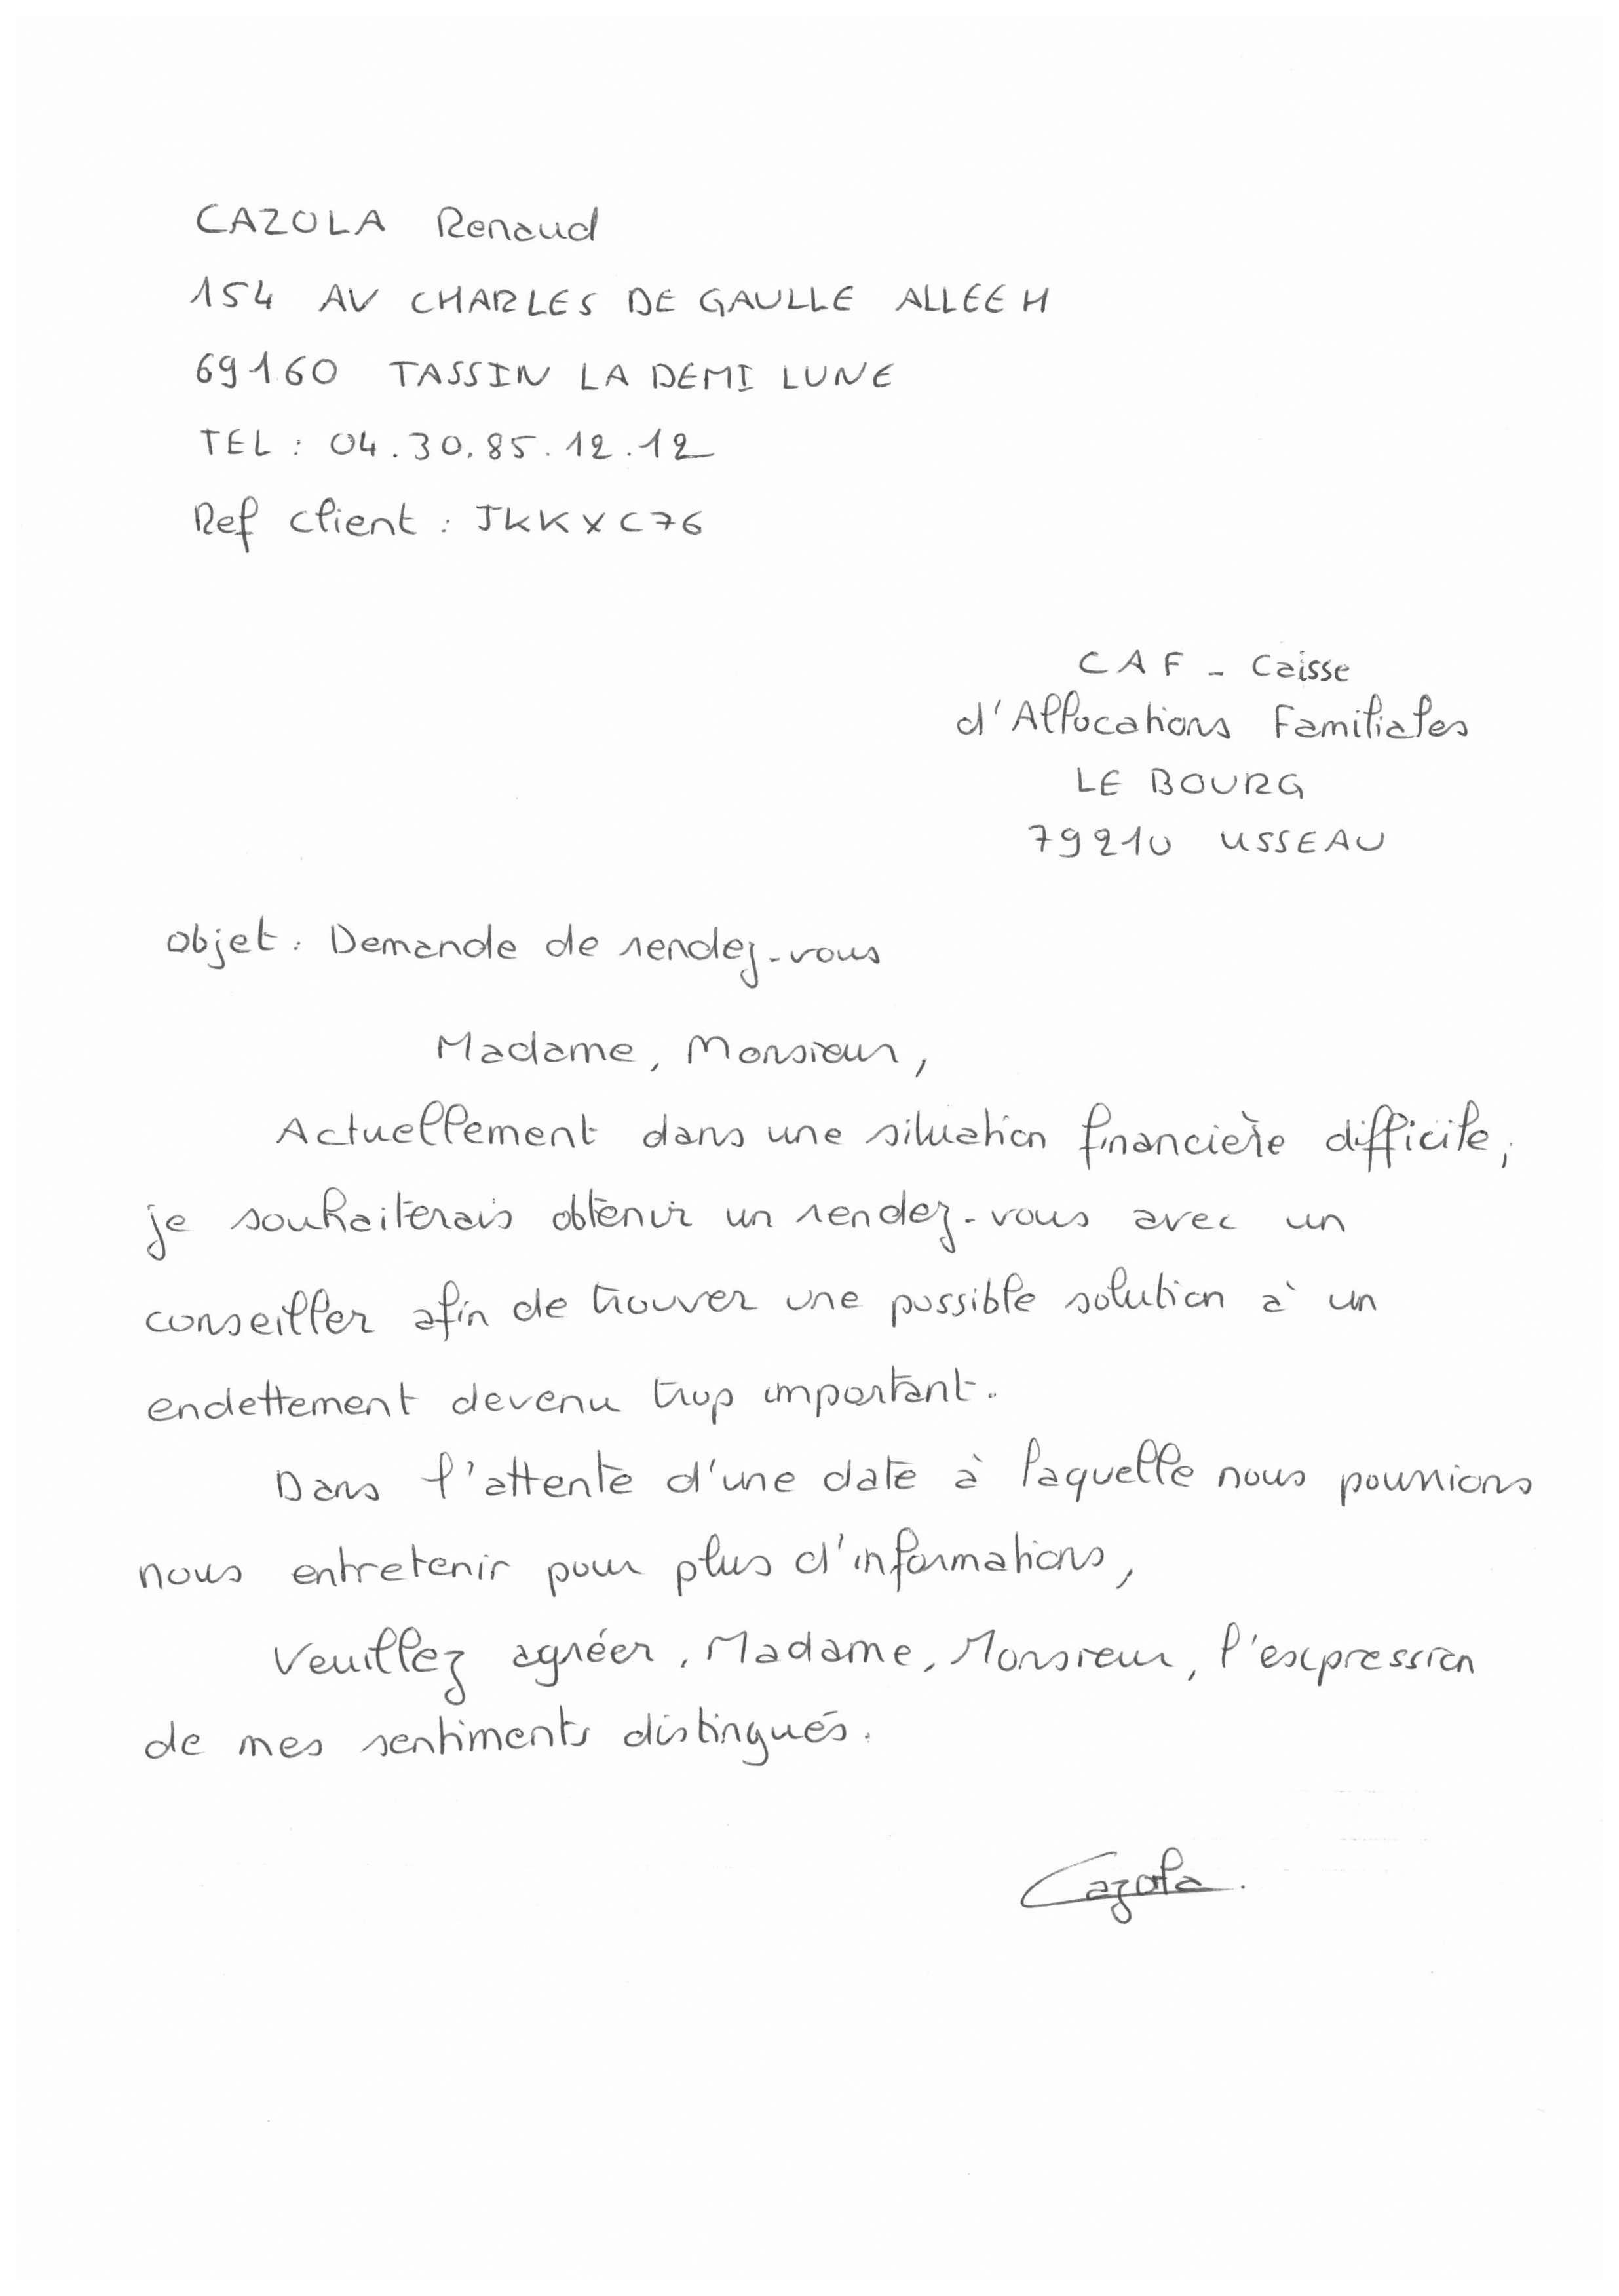 CAZOLA Renaud
154 AV CHARLES DE GAULLE ALLEE H
69160 TASSIN LA DEMI LUNE
TEL : 04.30.85.12.12
Ref client : JKKXC76
CAF - Caisse
d'Allocations Familiales
LE BOURG
79210 USSEAU
Objet : Demande de rendez-vous
Madame, Monsieur,
Actuellement dans une situation financière difficile,
je souhaiterais obtenir un rendez-vous avec un
conseiller afin de trouver une possible solution à un
endettement devenu trop important.
Dans l'attente d'une date à laquelle nous pourrions
nous entretenir pour plus d'informations,
Veuillez agréer, Madame, Monsieur, l'expression
de mes sentiments distingués.
Cazola.